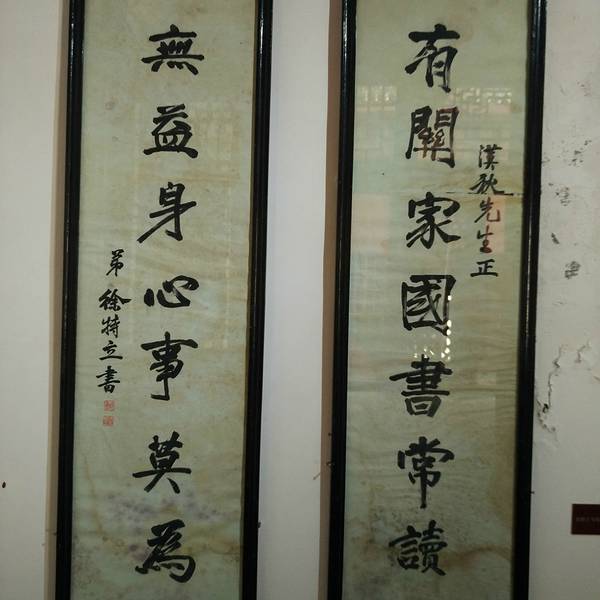 有關家國書常讀
漢秋先生正
無益身心事莫為
弟徐特立書